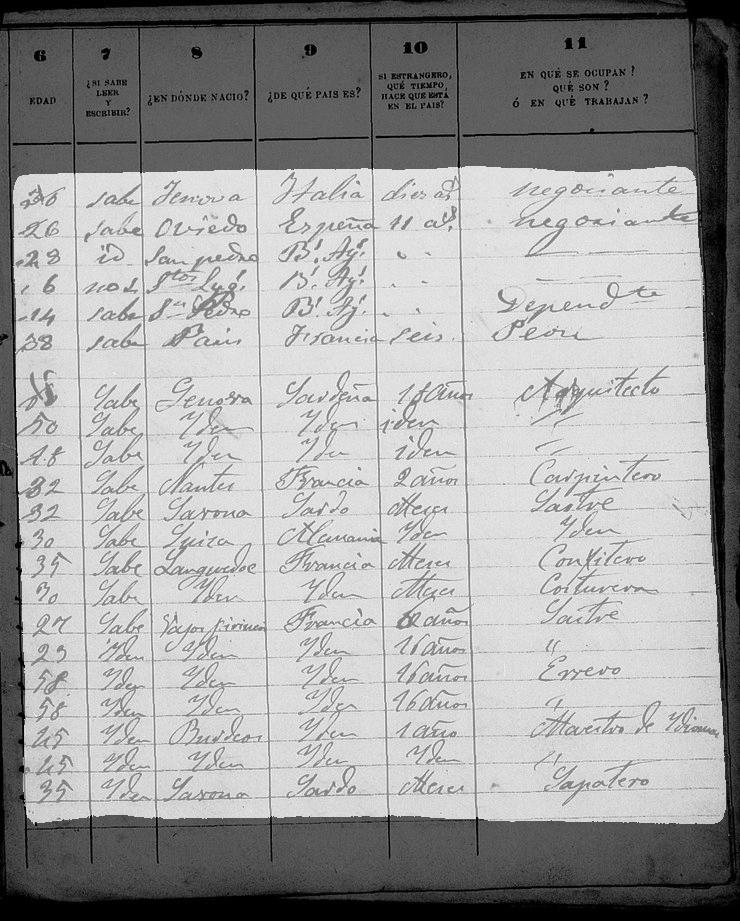 6 7 8 9 10 11
EDAD ¿SI SABE LEER Y ESCRIBIR? ¿EN DÓNDE NACIO? ¿DE QUÉ PAIS ES? SI ESTRANGERO, QUÉ TIEMPO HACE QUE ESTÁ EN EL PAIS? EN QUÉ SE OCUPAN? QUÉ SON? Ó EN QUÉ TRABAJAN?
sabe Jenova Italia negociante
26 sabe Oviedo España 11 as. negociante
28 id San pedro Bs. Ays. " "
6 Stos Lugs. Bs. Ays. " "
14 sabe Sn Pedro Bs. Ays. " " Dependte
38 sabe Paris Francia seis Peon
Sabe Genova Sardeña 18 años Arquitecto
50 Sabe Yden Yden iden "
48 Sabe Yden Yden iden "
32 Sabe Nantes Francia 2 años Carpintero
32 Sabe Savona Sardo Meses Sastre
30 Sabe Suiza Alemania Yden Yden
35 Sabe Languedoc Francia Meses Confitero
30 Sabe Yden Yden Meses Costurera
27 Sabe Vajos pirineos Francia años Sastre
23 Yden Yden Yden 16 años "
58 Yden Yden Yden 16 años Errero
58 Yden Yden Yden 16 años "
45 Yden Burdeos Yden 1 año Maestro de Ydiomas
45 Yden Yden Yden Yden "
35 Yden Savona Sardo Meses Sapatero